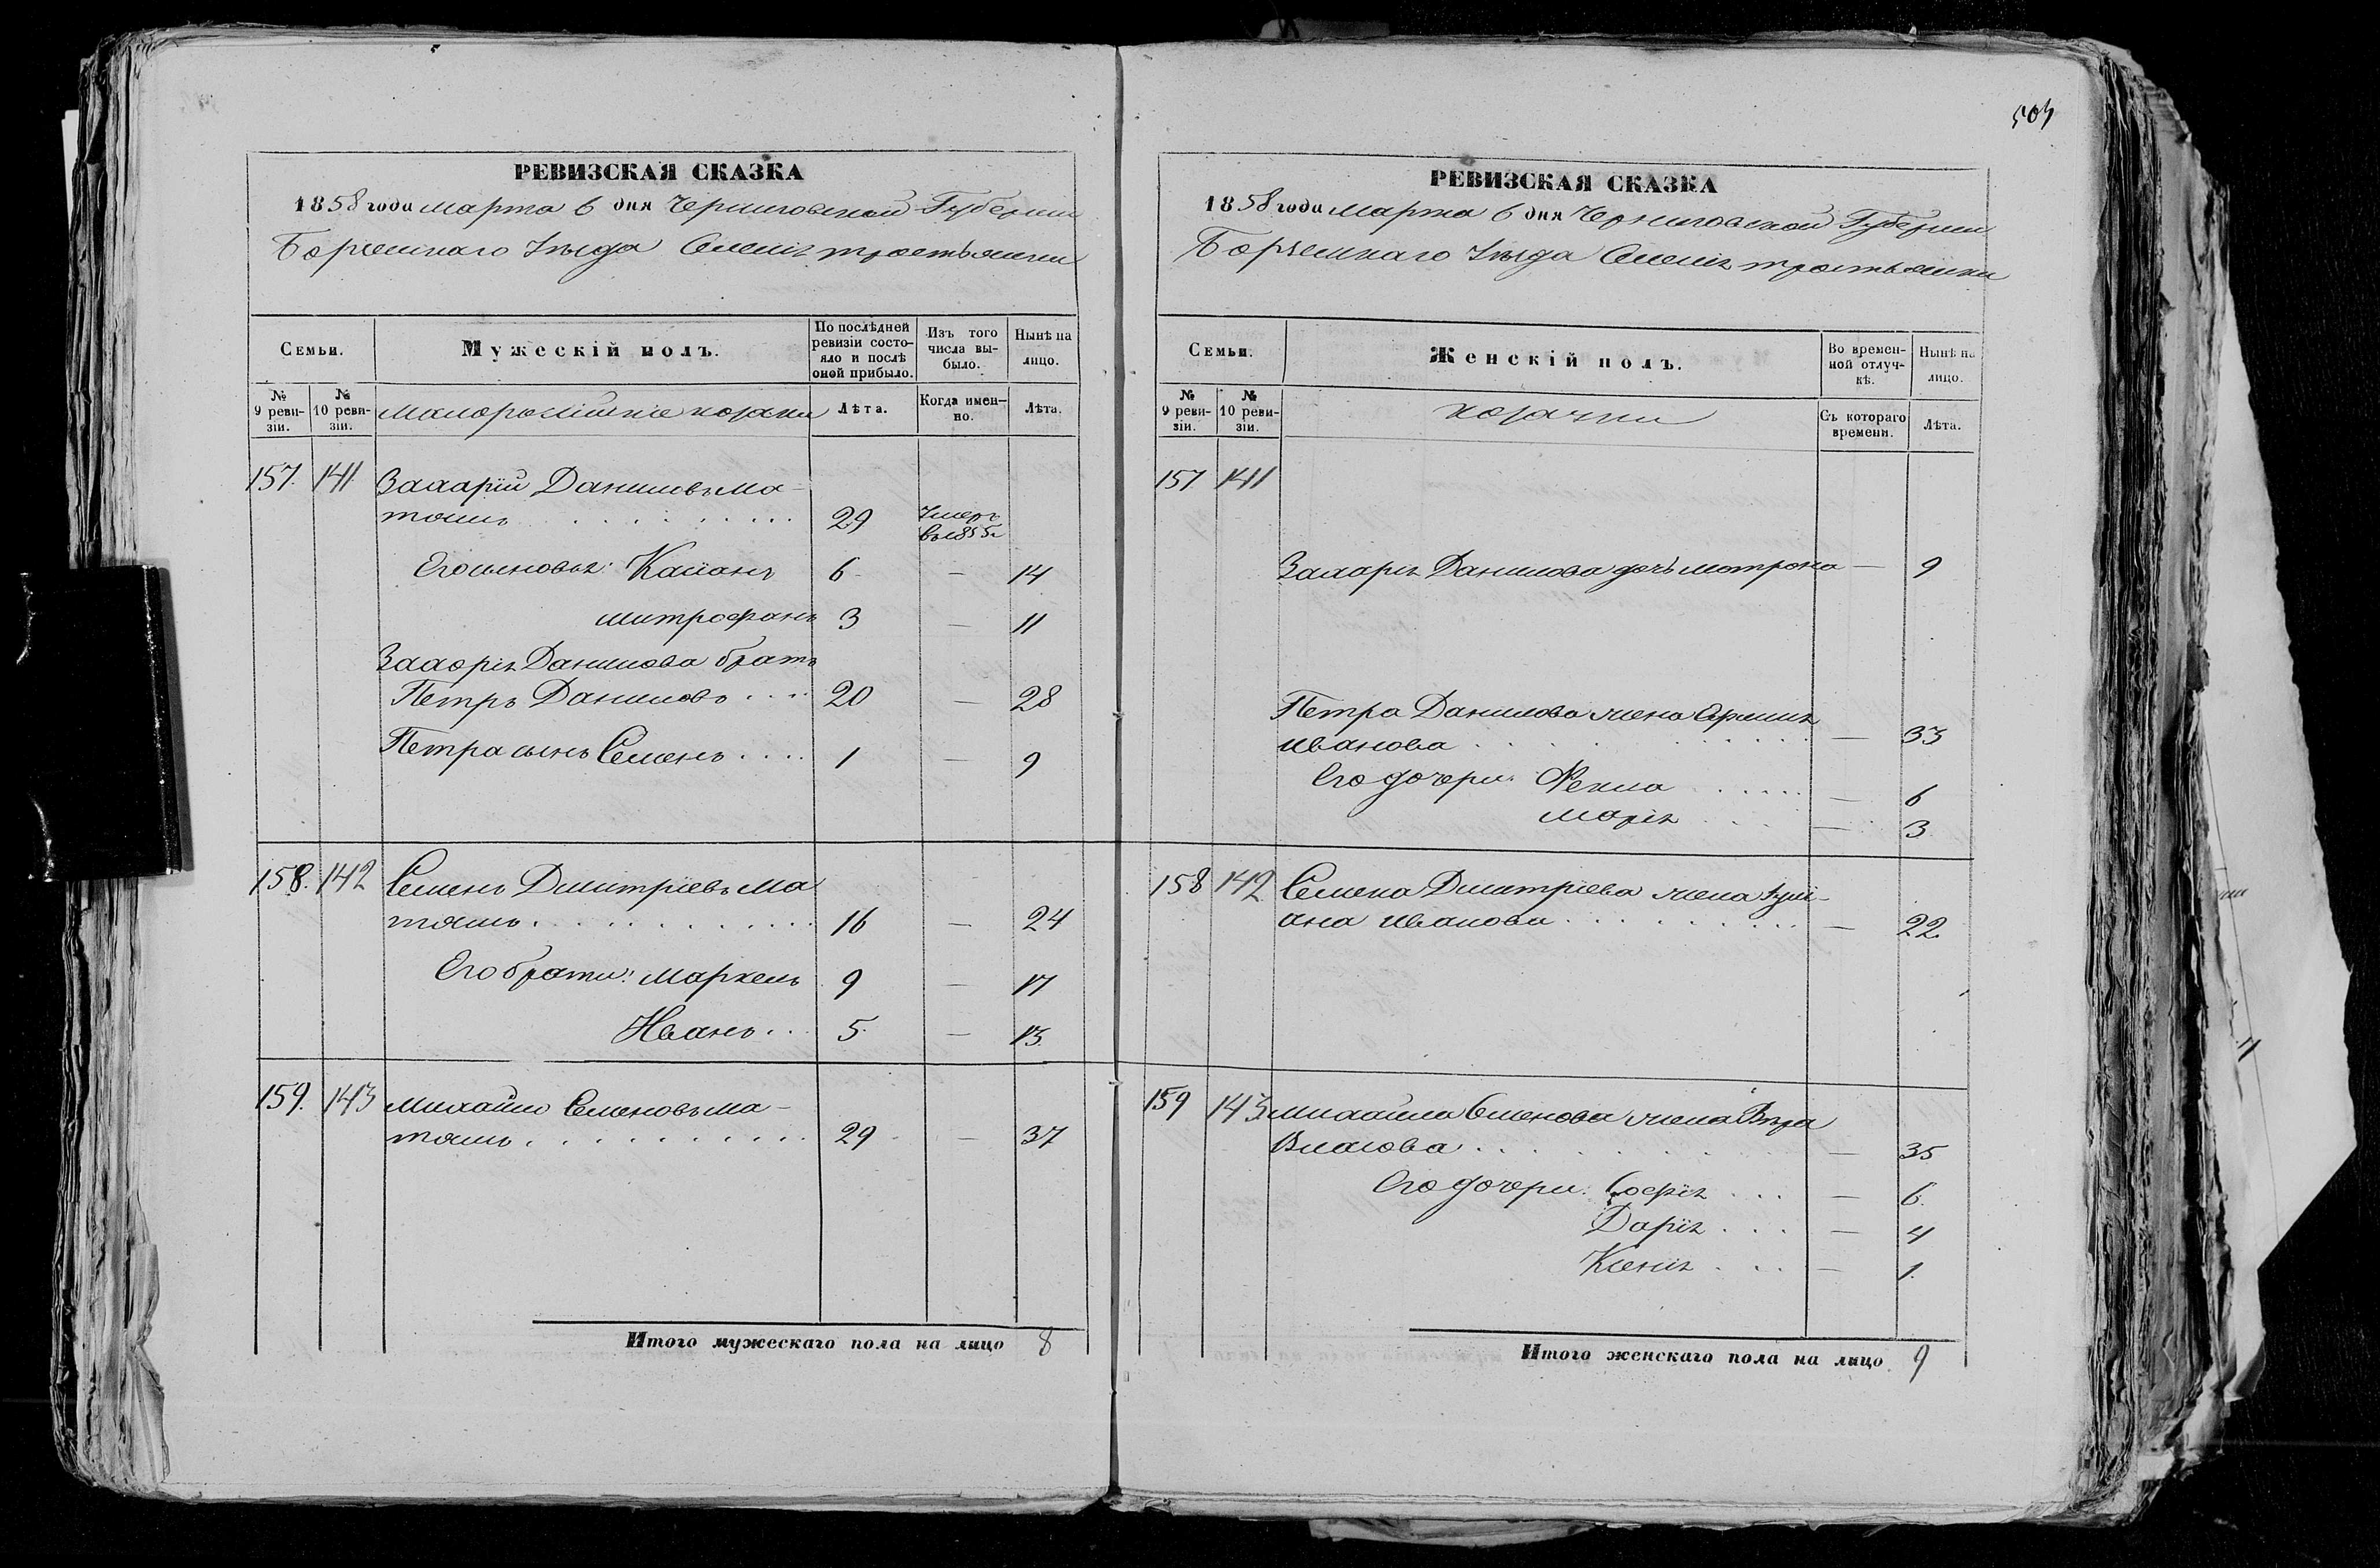 РЕВИЗСКАЯ СКАЗКА
1858 года марта 6 дня Черниговской Губернии
Борзенскаго Уезда Селенія тростьянки
Семьи.
Мужескій полъ.
По послѣдней ревизіи состояло и послѣ оной прибыло.
Изъ того числа выбыло.
Нынѣ на лицо.
№ 9 ревизіи.
№ 10 ревизіи.
малороссійскіе козаки
Лѣта.
Когда именно.
Лѣта.
157. 141 Захарій Даниловъ Ма-
тяшъ 29 Умеръ в 1855
Его сыновья: Касіанъ 6 — 14
митрофанъ 3 — 11
Захарія Данилова братъ
Петръ Даниловъ 20 — 28
Петра сынъ Семенъ 1 — 9
158. 142 Семенъ Дмитріевъ Ма
тяшъ 16 — 24
Его братья: Маркелъ 9 — 17
Иванъ 5 — 13
159. 143 михайло Семеновъ ма-
тяшъ 29 — 37
Итого мужескаго пола на лицо 8
504
РЕВИЗСКАЯ СКАЗКА
1858 года марта 6 дня Черниговской Губернии
Борзенскаго Уезда Селенія тростьянки
Семьи.
Женскій полъ.
Во временной отлучкѣ.
Нынѣ на лицо.
№ 9 ревизіи.
№ 10 ревизіи.
козачки
Съ котораго времени.
Лѣта.
157 141
Захарія Данилова дочь мотрона — 9
Петра Данилова жена
иванова — 33
Его дочери: Фекла — 6
марія — 3
158 142 Семена Дмитріева жена Ули-
ана иванова — 22
159 143 михайла Семенова жена Вѣра
Власова — 35
Его дочери: Софія — 6
Дарія — 4
Ксенія — 1
Итого женскаго пола на лицо 9